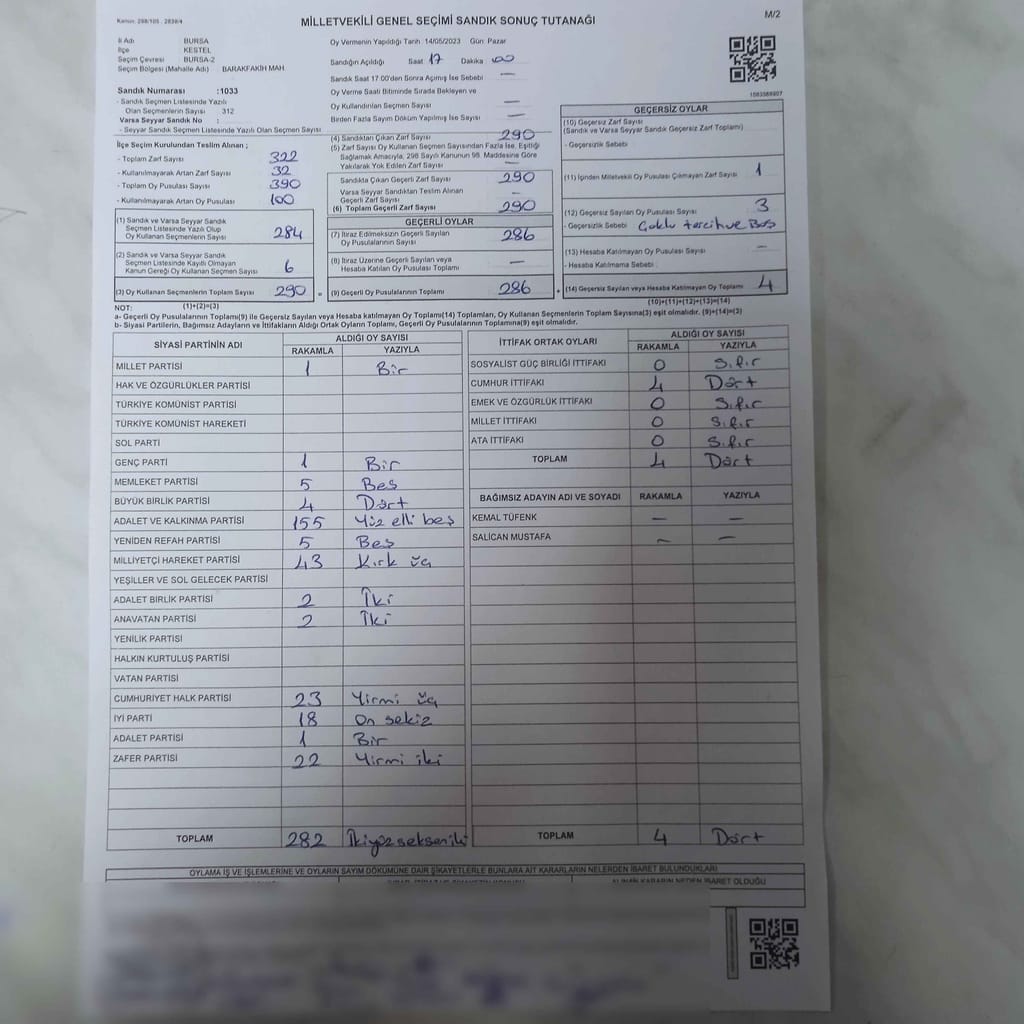 Kanun: 298/105 , 2839/4
MİLLETVEKİLİ GENEL SEÇİMİ SANDIK SONUÇ TUTANAĞI
M/2
İl Adı BURSA
İlçe KESTEL
Seçim Çevresi BURSA-2
Seçim Bölgesi (Mahalle Adı) BARAKFAKİH MAH.
Oy Vermenin Yapıldığı Tarih 14/05/2023 Gün: Pazar
Sandığın Açıldığı Saat 17 Dakika 00
Sandık Saat 17:00'den Sonra Açımış İse Sebebi —
Oy Verme Saati Bitiminde Sırada Bekleyen ve
Oy Kullandırılan Seçmen Sayısı —
Birden Fazla Sayım Döküm Yapılmış İse Sayısı —
Sandık Numarası :1033
- Sandık Seçmen Listesinde Yazılı
Olan Seçmenlerin Sayısı 312
Varsa Seyyar Sandık No :
- Seyyar Sandık Seçmen Listesinde Yazılı Olan Seçmen Sayısı
İlçe Seçim Kurulundan Teslim Alınan ;
- Toplam Zarf Sayısı 322
- Kullanılmayarak Artan Zarf Sayısı 32
- Toplam Oy Pusulası Sayısı 390
- Kullanılmayarak Artan Oy Pusulası 100
(1) Sandık ve Varsa Seyyar Sandık
Seçmen Listesinde Yazılı Olup
Oy Kullanan Seçmenlerin Sayısı 284
(2) Sandık ve Varsa Seyyar Sandık
Seçmen Listesinde Kayıtlı Olmayan
Kanun Gereği Oy Kullanan Seçmen Sayısı 6
(3) Oy Kullanan Seçmenlerin Toplam Sayısı 290 =
(1)+(2)=(3)
(4) Sandıktan Çıkan Zarf Sayısı 290
(5) Zarf Sayısı Oy Kullanan Seçmen Sayısından Fazla İse, Eşitliği
Sağlamak Amacıyla, 298 Sayılı Kanunun 98. Maddesine Göre
Yakılarak Yok Edilen Zarf Sayısı —
Sandıkta Çıkan Geçerli Zarf Sayısı 290
Varsa Seyyar Sandıktan Teslim Alınan
Geçerli Zarf Sayısı —
(6) Toplam Geçerli Zarf Sayısı 290
GEÇERLİ OYLAR
(7) İtiraz Edilmeksizin Geçerli Sayılan
Oy Pusulalarının Sayısı 286
(8) İtiraz Üzerine Geçerli Sayılan veya
Hesaba Katılan Oy Pusulası Toplamı —
(9) Geçerli Oy Pusulalarının Toplamı 286 +
GEÇERSİZ OYLAR
(10) Geçersiz Zarf Sayısı
(Sandık ve Varsa Seyyar Sandık Geçersiz Zarf Toplamı)
- Geçersizlik Sebebi
(11) İçinden Milletvekili Oy Pusulası Çıkmayan Zarf Sayısı 1
(12) Geçersiz Sayılan Oy Pusulası Sayısı 3
- Geçersizlik Sebebi Çoklu tercih ve Boş
(13) Hesaba Katılmayan Oy Pusulası Sayısı —
- Hesaba Katılmama Sebebi :
(14) Geçersiz Sayılan veya Hesaba Katılmayan Oy Toplamı 4
(10)+(11)+(12)+(13)=(14)
NOT:
a- Geçerli Oy Pusulalarının Toplamı(9) ile Geçersiz Sayılan veya Hesaba katılmayan Oy Toplamı(14) Toplamları, Oy Kullanan Seçmenlerin Toplam Sayısına(3) eşit olmalıdır. (9)+(14)=(3)
b- Siyasi Partilerin, Bağımsız Adayların ve İttifakların Aldığı Ortak Oyların Toplamı, Geçerli Oy Pusulalarının Toplamına(9) eşit olmalıdır.
SİYASİ PARTİNİN ADI ALDIĞI OY SAYISI
RAKAMLA YAZIYLA
MİLLET PARTİSİ 1 Bir
HAK VE ÖZGÜRLÜKLER PARTİSİ
TÜRKİYE KOMÜNİST PARTİSİ
TÜRKİYE KOMÜNİST HAREKETİ
SOL PARTİ
GENÇ PARTİ 1 Bir
MEMLEKET PARTİSİ 5 Beş
BÜYÜK BİRLİK PARTİSİ 4 Dört
ADALET VE KALKINMA PARTİSİ 155 Yüz elli beş
YENİDEN REFAH PARTİSİ 5 Beş
MİLLİYETÇİ HAREKET PARTİSİ 43 Kırk üç
YEŞİLLER VE SOL GELECEK PARTİSİ
ADALET BİRLİK PARTİSİ 2 İki
ANAVATAN PARTİSİ 2 İki
YENİLİK PARTİSİ
HALKIN KURTULUŞ PARTİSİ
VATAN PARTİSİ
CUMHURİYET HALK PARTİSİ 23 Yirmi üç
İYİ PARTİ 18 On sekiz
ADALET PARTİSİ 1 Bir
ZAFER PARTİSİ 22 Yirmi iki
TOPLAM 282 İkiyüzsekseniki
İTTİFAK ORTAK OYLARI ALDIĞI OY SAYISI
RAKAMLA YAZIYLA
SOSYALİST GÜÇ BİRLİĞİ İTTİFAKI 0 Sıfır
CUMHUR İTTİFAKI 4 Dört
EMEK VE ÖZGÜRLÜK İTTİFAKI 0 Sıfır
MİLLET İTTİFAKI 0 Sıfır
ATA İTTİFAKI 0 Sıfır
TOPLAM 4 Dört
BAĞIMSIZ ADAYIN ADI VE SOYADI RAKAMLA YAZIYLA
KEMAL TÜFENK — —
SALİCAN MUSTAFA — —
TOPLAM 4 Dört
OYLAMA İŞ VE İŞLEMLERİNE VE OYLARIN SAYIM DÖKÜMÜNE DAİR ŞİKAYETLERLE BUNLARA AİT KARARLARIN NELERDEN İBARET BULUNDUKLARI
ALINAN KARARIN NEDEN İBARET OLDUĞU